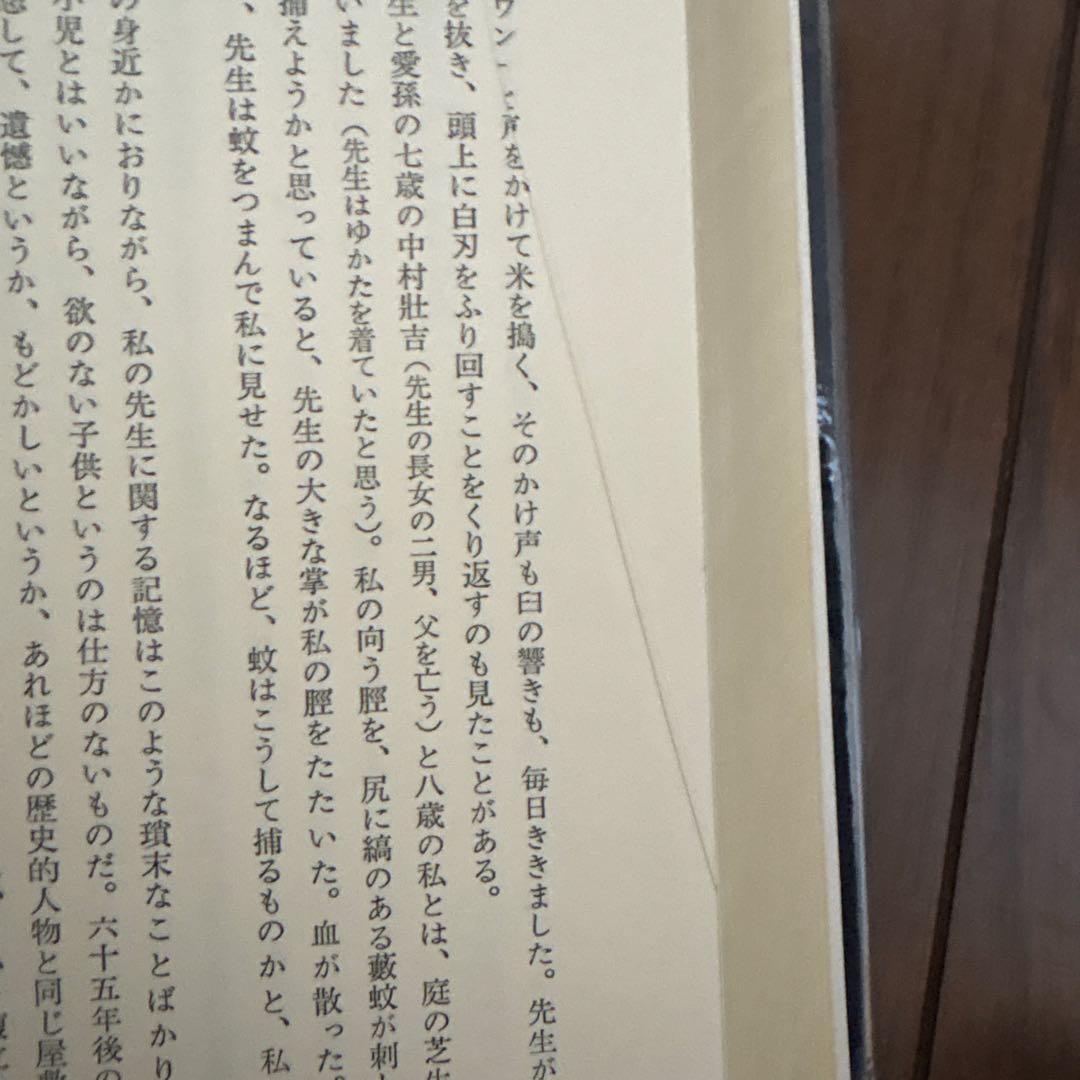 声をかけて米を搗く、そのかけ声も臼の響きも、毎日ききました。先生が
を抜き、頭上に白刃をふり回すことをくり返すのも見たことがある。
生と愛孫の七歳の中村壯吉（先生の長女の二男、父を亡う）と八歳の私とは、庭の芝生
いました（先生はゆかたを着ていたと思う）。私の向う脛を、尻に縞のある藪蚊が刺
捕えようかと思っていると、先生の大きな掌が私の脛をたたいた。血が散った。
、先生は蚊をつまんで私に見せた。なるほど、蚊はこうして捕るものかと、私
の身近かにおりながら、私の先生に関する記憶はこのような瑣末なことばかり
小児とはいいながら、欲のない子供というのは仕方のないものだ。六十五年後の
して、遺憾というか、もどかしいというか、あれほどの歴史的人物と同じ屋敷